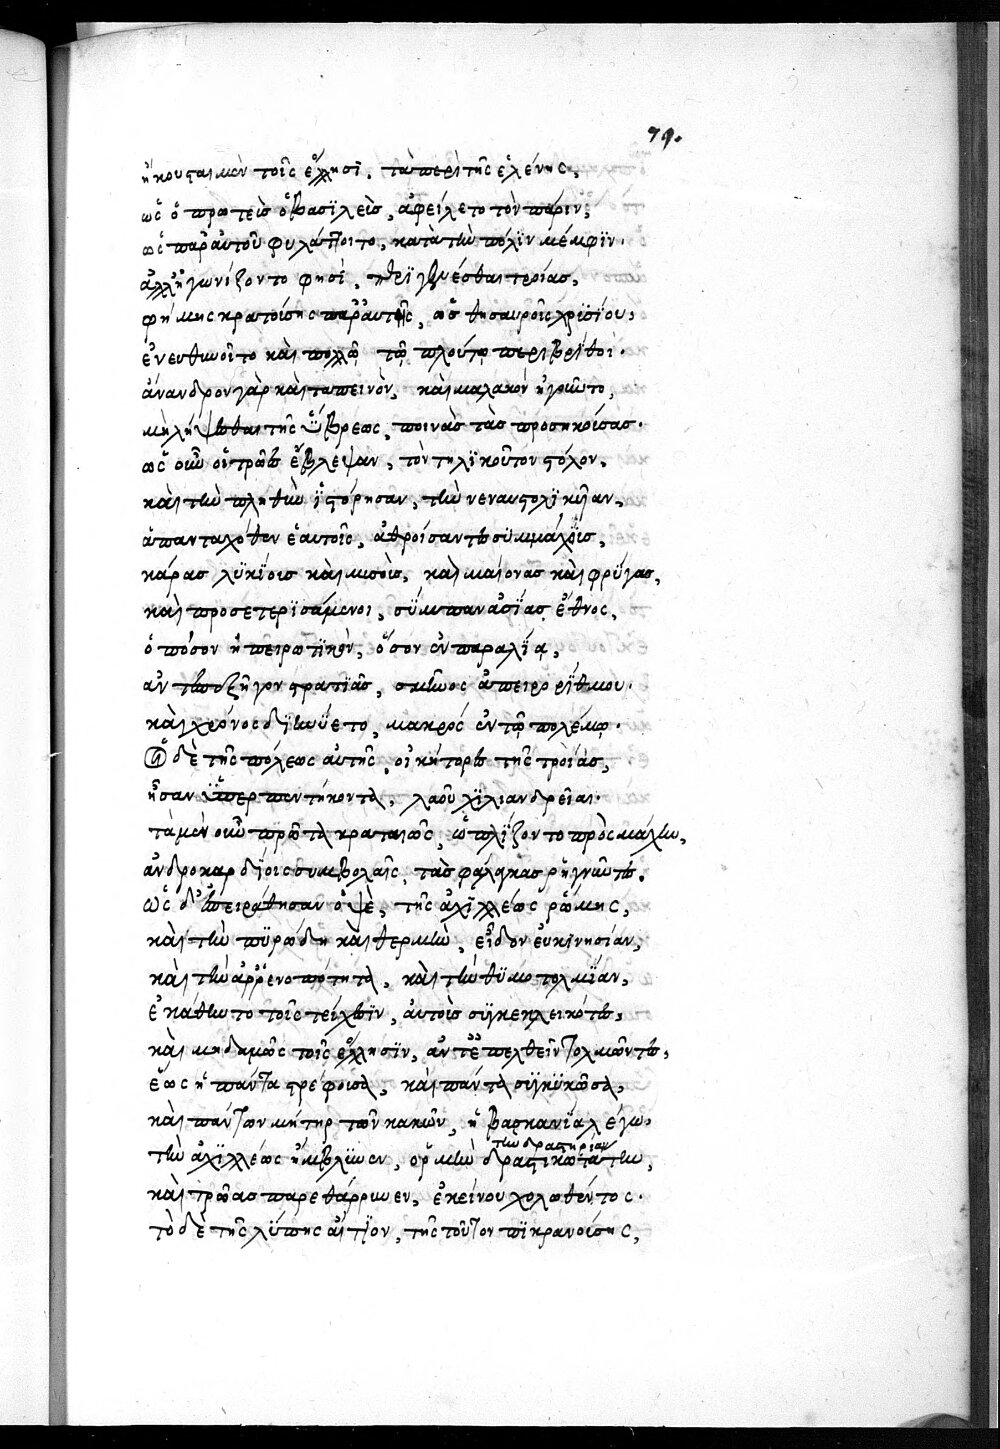 79.
ἤκουσται μὲν τοῖς ἕλλησι, τὰ περὶ τῆς ἑλένης,
ὡς ὁ πρωτεὺς ὁ βασϊλεὺς, ἀφείλετο τὸν πάριν,
ὡς παρ' αὐτοῦ φυλάττοιτο, κατὰ τὴν πόλϊν μέμφϊν.
ἀλλ' ἠγωνίζοντο φησὶ, περὶ γῆς τροίας,
φήμης κρατούσης παρ' αὐτοῖς, ὡς θησαυροῖς χρϋσίου,
ἐνευθυνοῖτο καὶ πολλῷ τῷ πλούτῳ περιβρίθοι.
ἄνανδρον γὰρ καὶ ταπεινὸν, καὶ μαλακὸν ἡγοῦντο,
μὴ λήψεσθαι τῆς ὕβρεως, ποινὰς τὰς προσηκούσας.
ὡς οὖν οἱ τρῶες ἔβλεψαν, τὸν τηλικοῦτον στόλον,
καὶ τὴν πληθὺν ἱστόρησαν, τὴν νεναυστολικυῖαν,
ἁπανταχόθεν ἑαυτοῖς, ἀθροίσαντες συμμάχους,
κάρας λϋκίους καὶ μυσοὺς, καὶ μαίονας καὶ φρύγας,
καὶ προσετερισάμενοι, σύμπαν ἀσίας ἔθνος,
ὁπόσον ἠπειρωτικὸν, ὅσον ἐν παραλίᾳ,
ἀντεπεξῆγον στρατιὰς, σμῆνος ἀπειραρίθμου.
καὶ χρόνος διηνύετο, μακρός ἐν τῷ πολέμῳ.
οἱ δὲ τῆς πόλεως αὐτῆς, οἰκήτορες τῆς τροίας,
ἦσαν ὑπὲρ πεντήκοντα, λαοῦ χϊλιανδρεῖαι.
τὰ μὲν οὖν πρῶτα κραταιῶς, ὡπλίζοντο πρὸς μάχην,
ἀνδροκαρδίοις συμβολαῖς, τὰς φάλαγκας ῥηγνῦντες.
ὡς δ' ἐπειράθησαν ὀψὲ, τῆς ἀχιλλέως ῥώμης,
καὶ τὴν πϋρώδη καὶ θερμὴν, εἶδον εὐκινησίαν,
καὶ τὴν ἀρρενοπότητα, καὶ τὴν θϋμοτολμίαν,
ἐκάθηντο τοῖς τείχεσϊν, αὐτοὺς συγκεκλεικότες,
καὶ μηδαμῶς τοῖς ἕλλησϊν, ἀντεπελθεῖν τολμῶντες,
ἕως ἡ πάντα στρέφουσα, καὶ πάντα συγκυκῶσα,
καὶ πάντων μήτηρ τῶν κακῶν, ἡ βασκανία λέγω,
τὴν δραστηρίαν
τὴν ἀχϊλλέως ἤμβλυνεν, ὁρμὴν δραστικωτάτην,
καὶ τρῶας παρεθάρρυνεν, ἐκείνου χολωθέντος.
τὸ δὲ τῆς λύπης αἴτϊον, τῆς τοῦτον πικρανούσης,